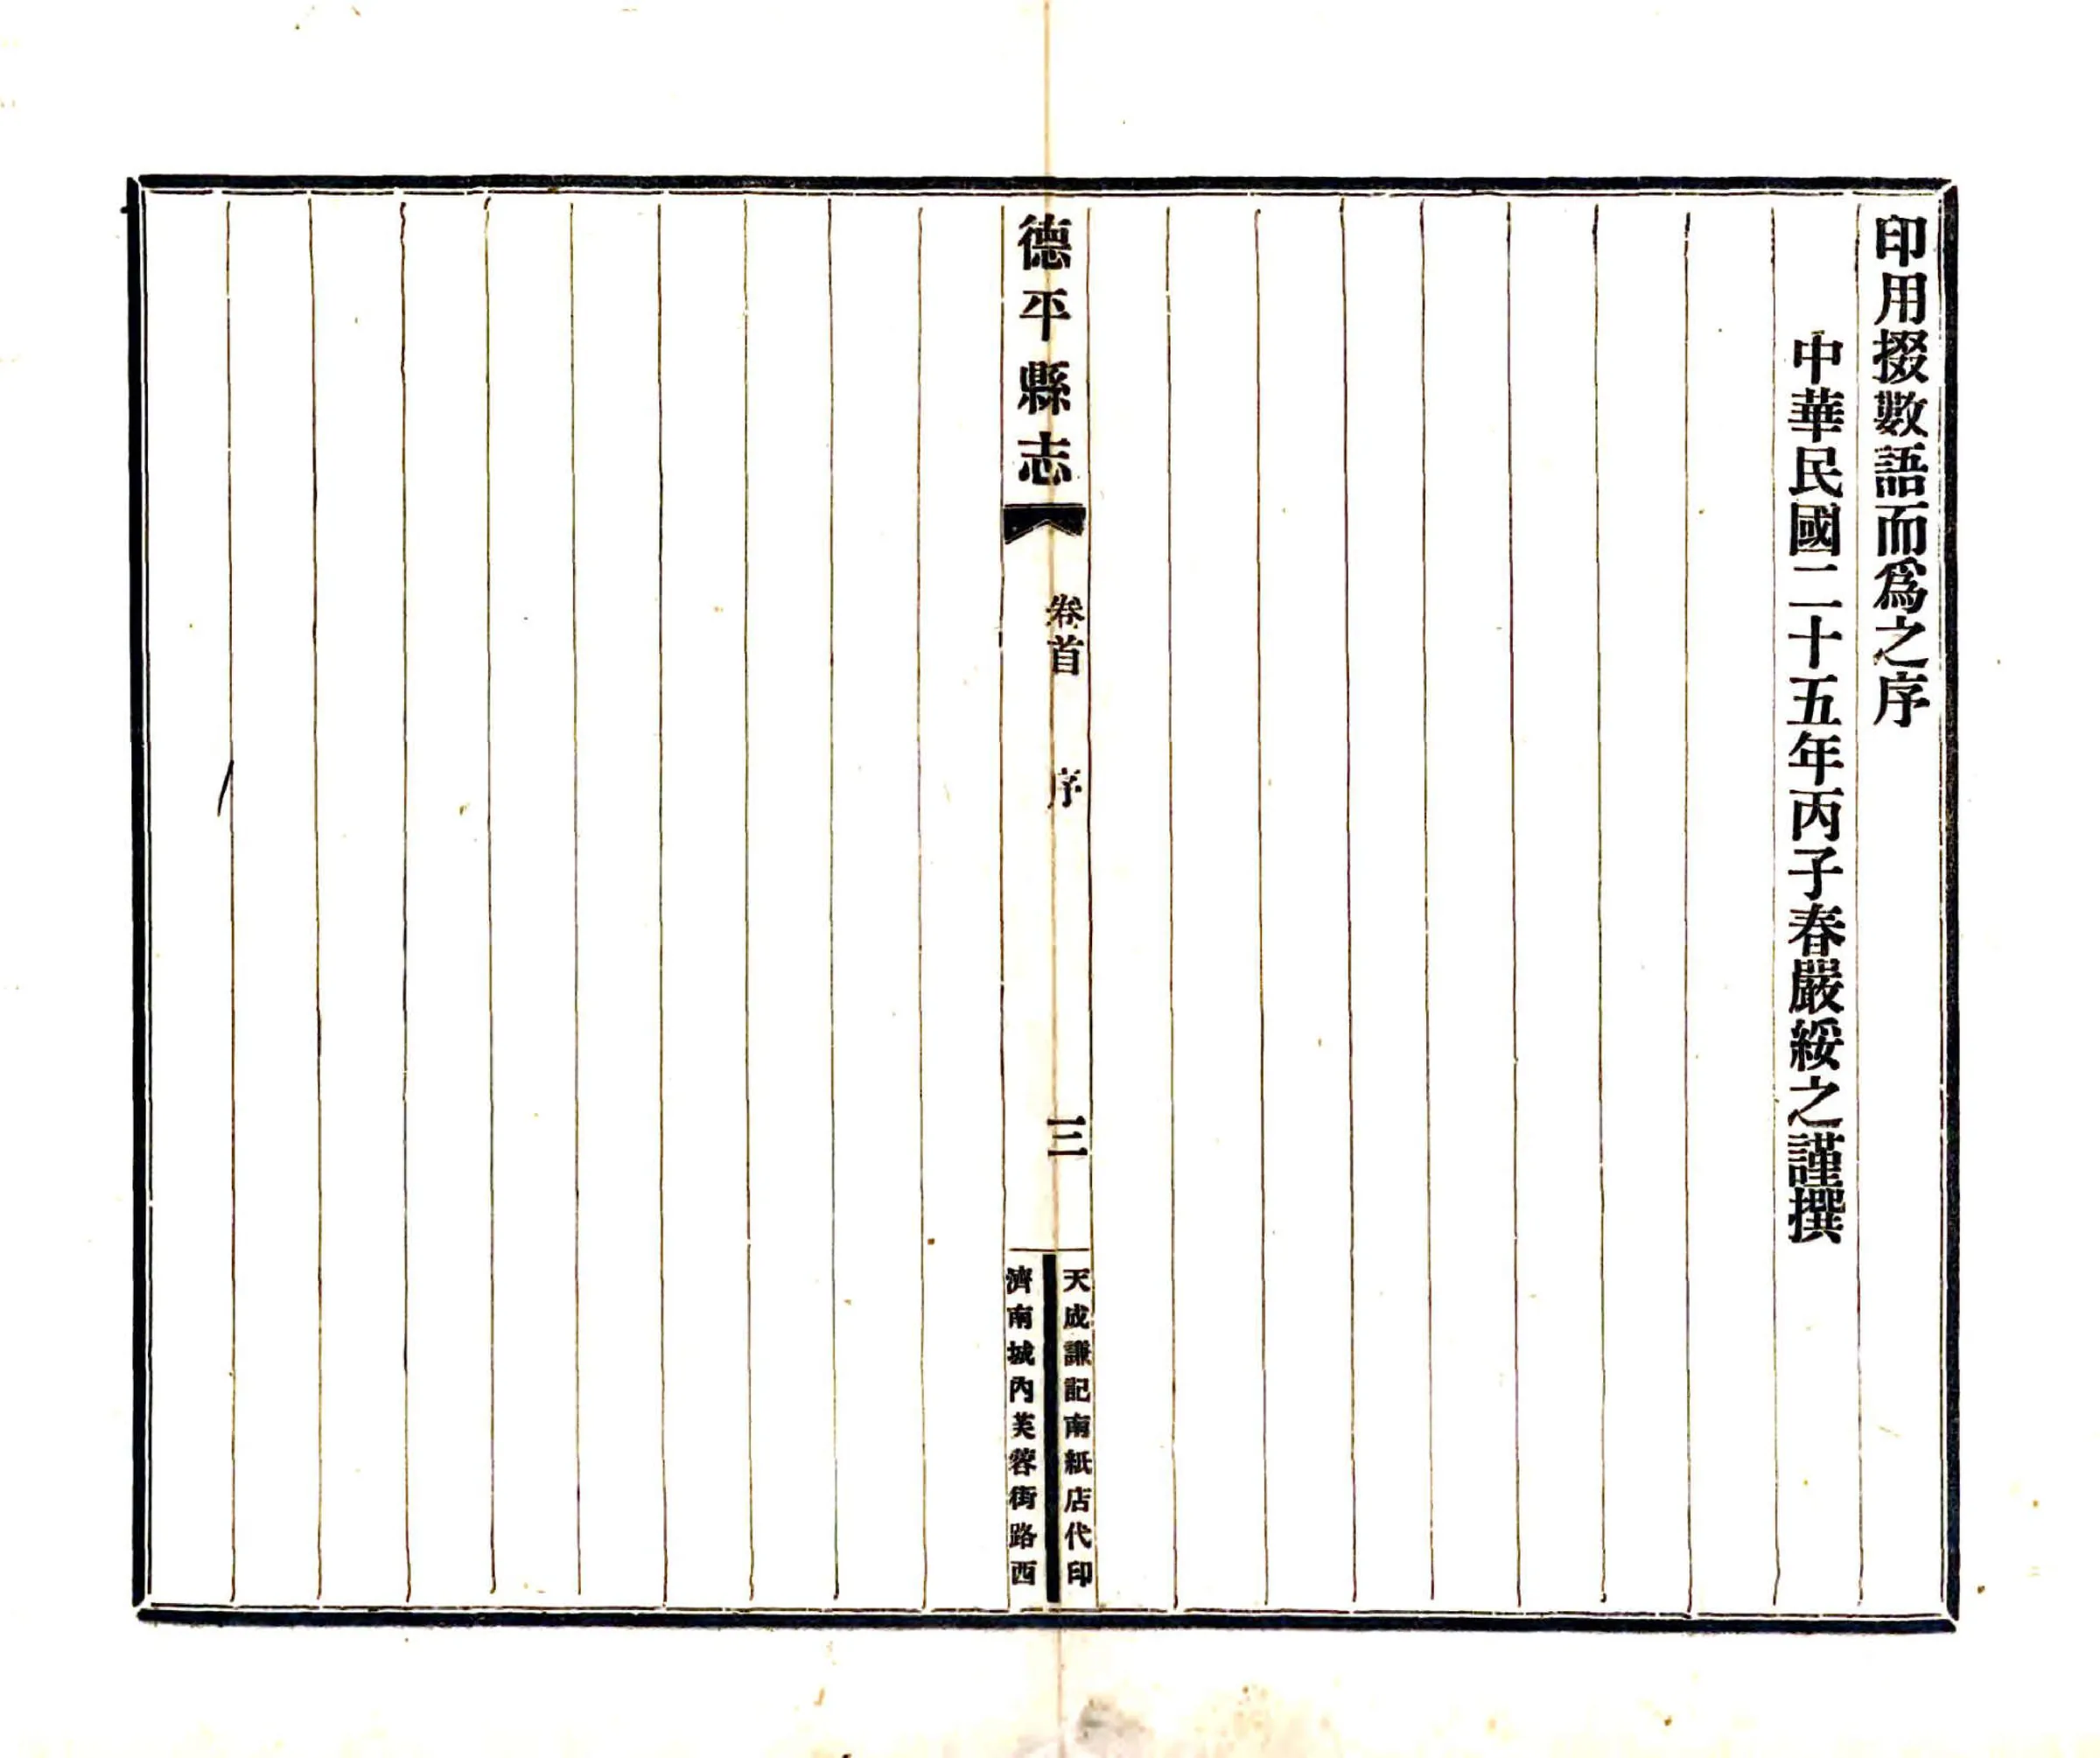 印用掇數語而爲之序
中華民國二十五年丙子春嚴綏之謹撰
德平縣志
卷首
序
三
天成謙記南紙店代印
濟南城內芙蓉街路西